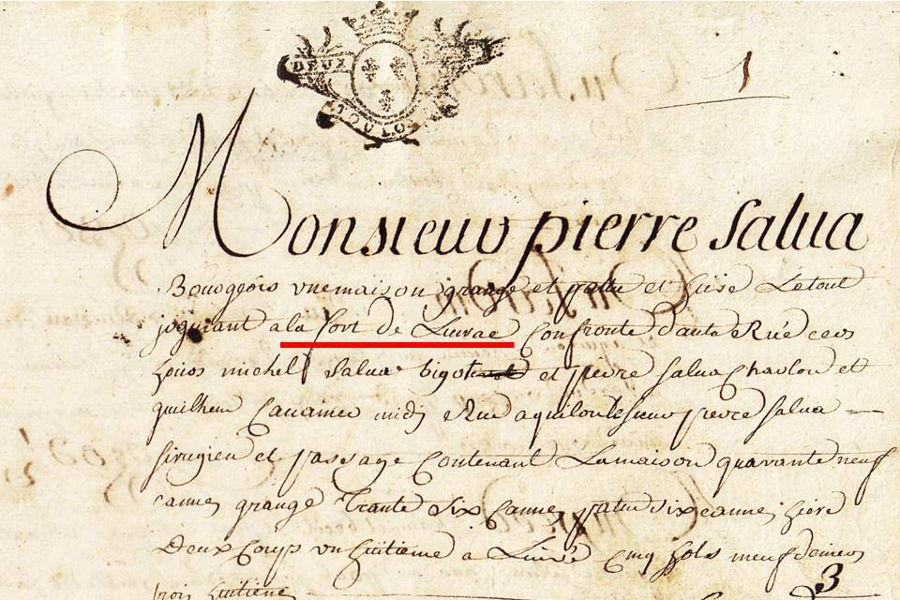 DEUX
TOULO
1
Monsieur pierre Salua
Bourgeois vne maison grange et patu et hiere Le tout
joignant a la fort de Liurac Confronte dauta Rüe cers
hoirs michel Salua bigot et pierre Salua Charlou et
guilhem midy Rüe aquilon le sieur pierre Salua
sirugien et passage Contenant La maison quarante neuf
cannes grange trante six Cannes patu dix cannes hiere
Deux Coups vn huitieme a Cinq sols neuf deniers
trois huitieme
3